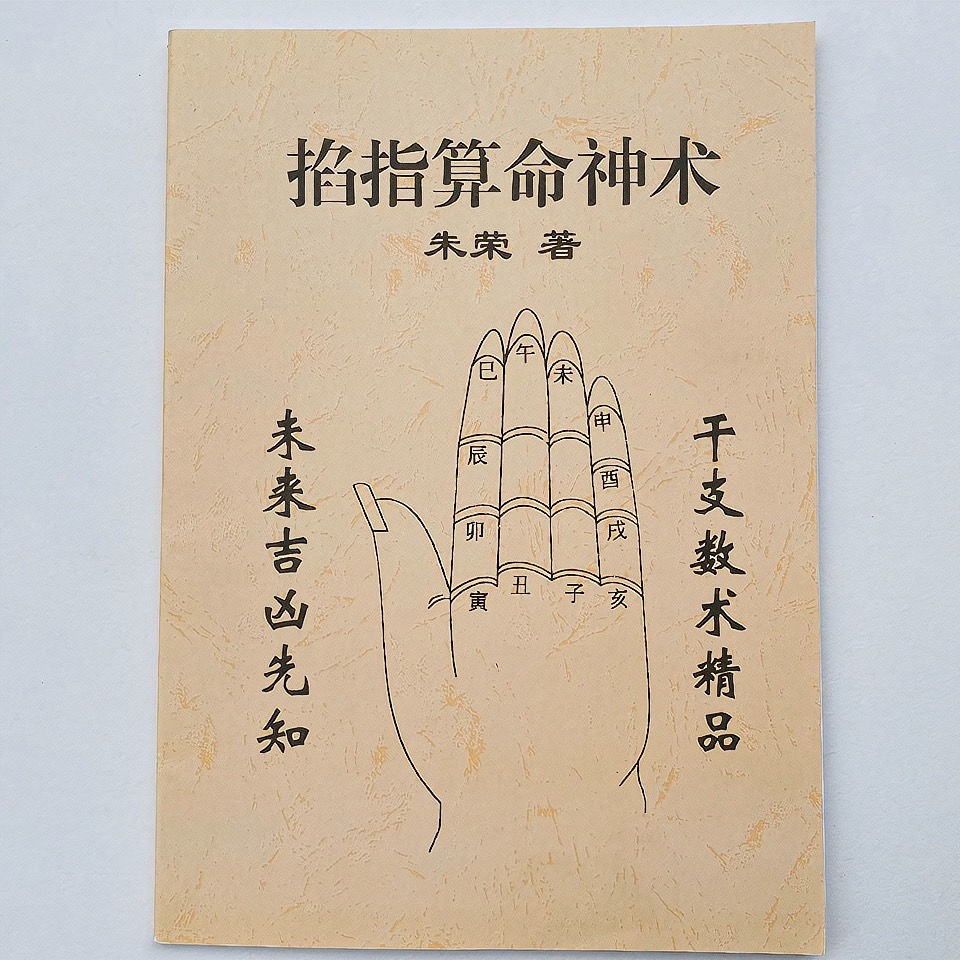 掐指算命神术
朱荣 著
干支数术精品
未来吉凶先知
巳
午
未
申
辰
酉
卯
戌
寅
丑
子
亥